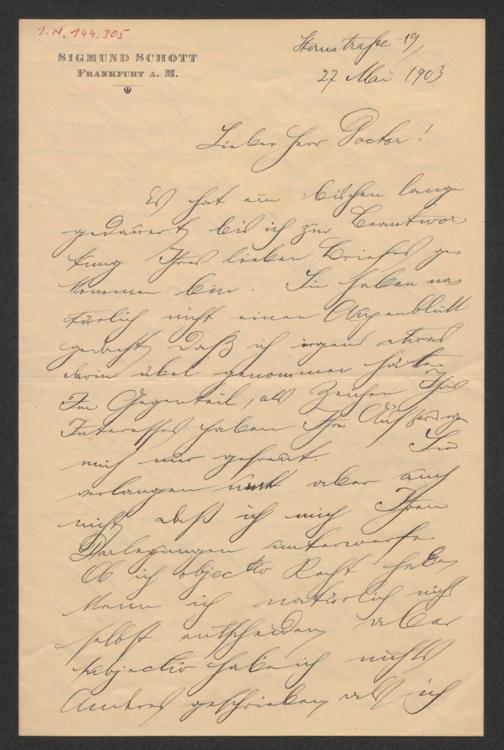 J.N. 144.305
SIGMUND SCHOTT
FRANKFURT A. M.
Sternstraße 19,
27 Mai 1903
Lieber Herr Doctor!
Es hat ein bischen lange
gedauert bis ich zur Beantwor-
tung Ihres lieben Briefes ge-
kommen bin. Sie haben na-
türlich nicht einen Augenblick
gedacht daß ich irgend etwas
darin übel genommen hätte.
Im Gegenteil, als Zeichen Ihres
Interesses haben Ihre
mich nur gefreut. Sie
verlangen aber auch
nicht daß ich mich Ihren
Darlegungen unterwerfe.
Ob ich objectiv Recht habe
kann ich natürlich nicht
selbst entscheiden aber
subjectiv habe ich nichts
Anderes geschrieben als ich